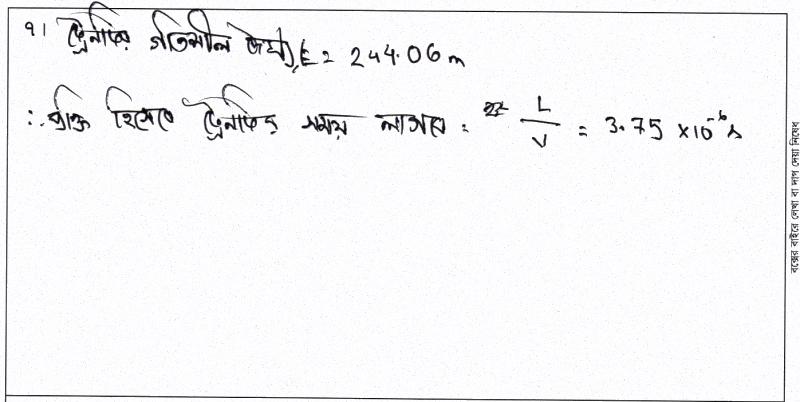 ৭। ট্রেনটির গতিশীল দৈর্ঘ্য, L = 244.06 m
∴ হিসেবে ট্রেনটির সময় লাগবে = L/V = 3.75 ×10⁻⁶ s
বক্সের বাইরে লেখা বা দাগ দেয়া নিষেধ